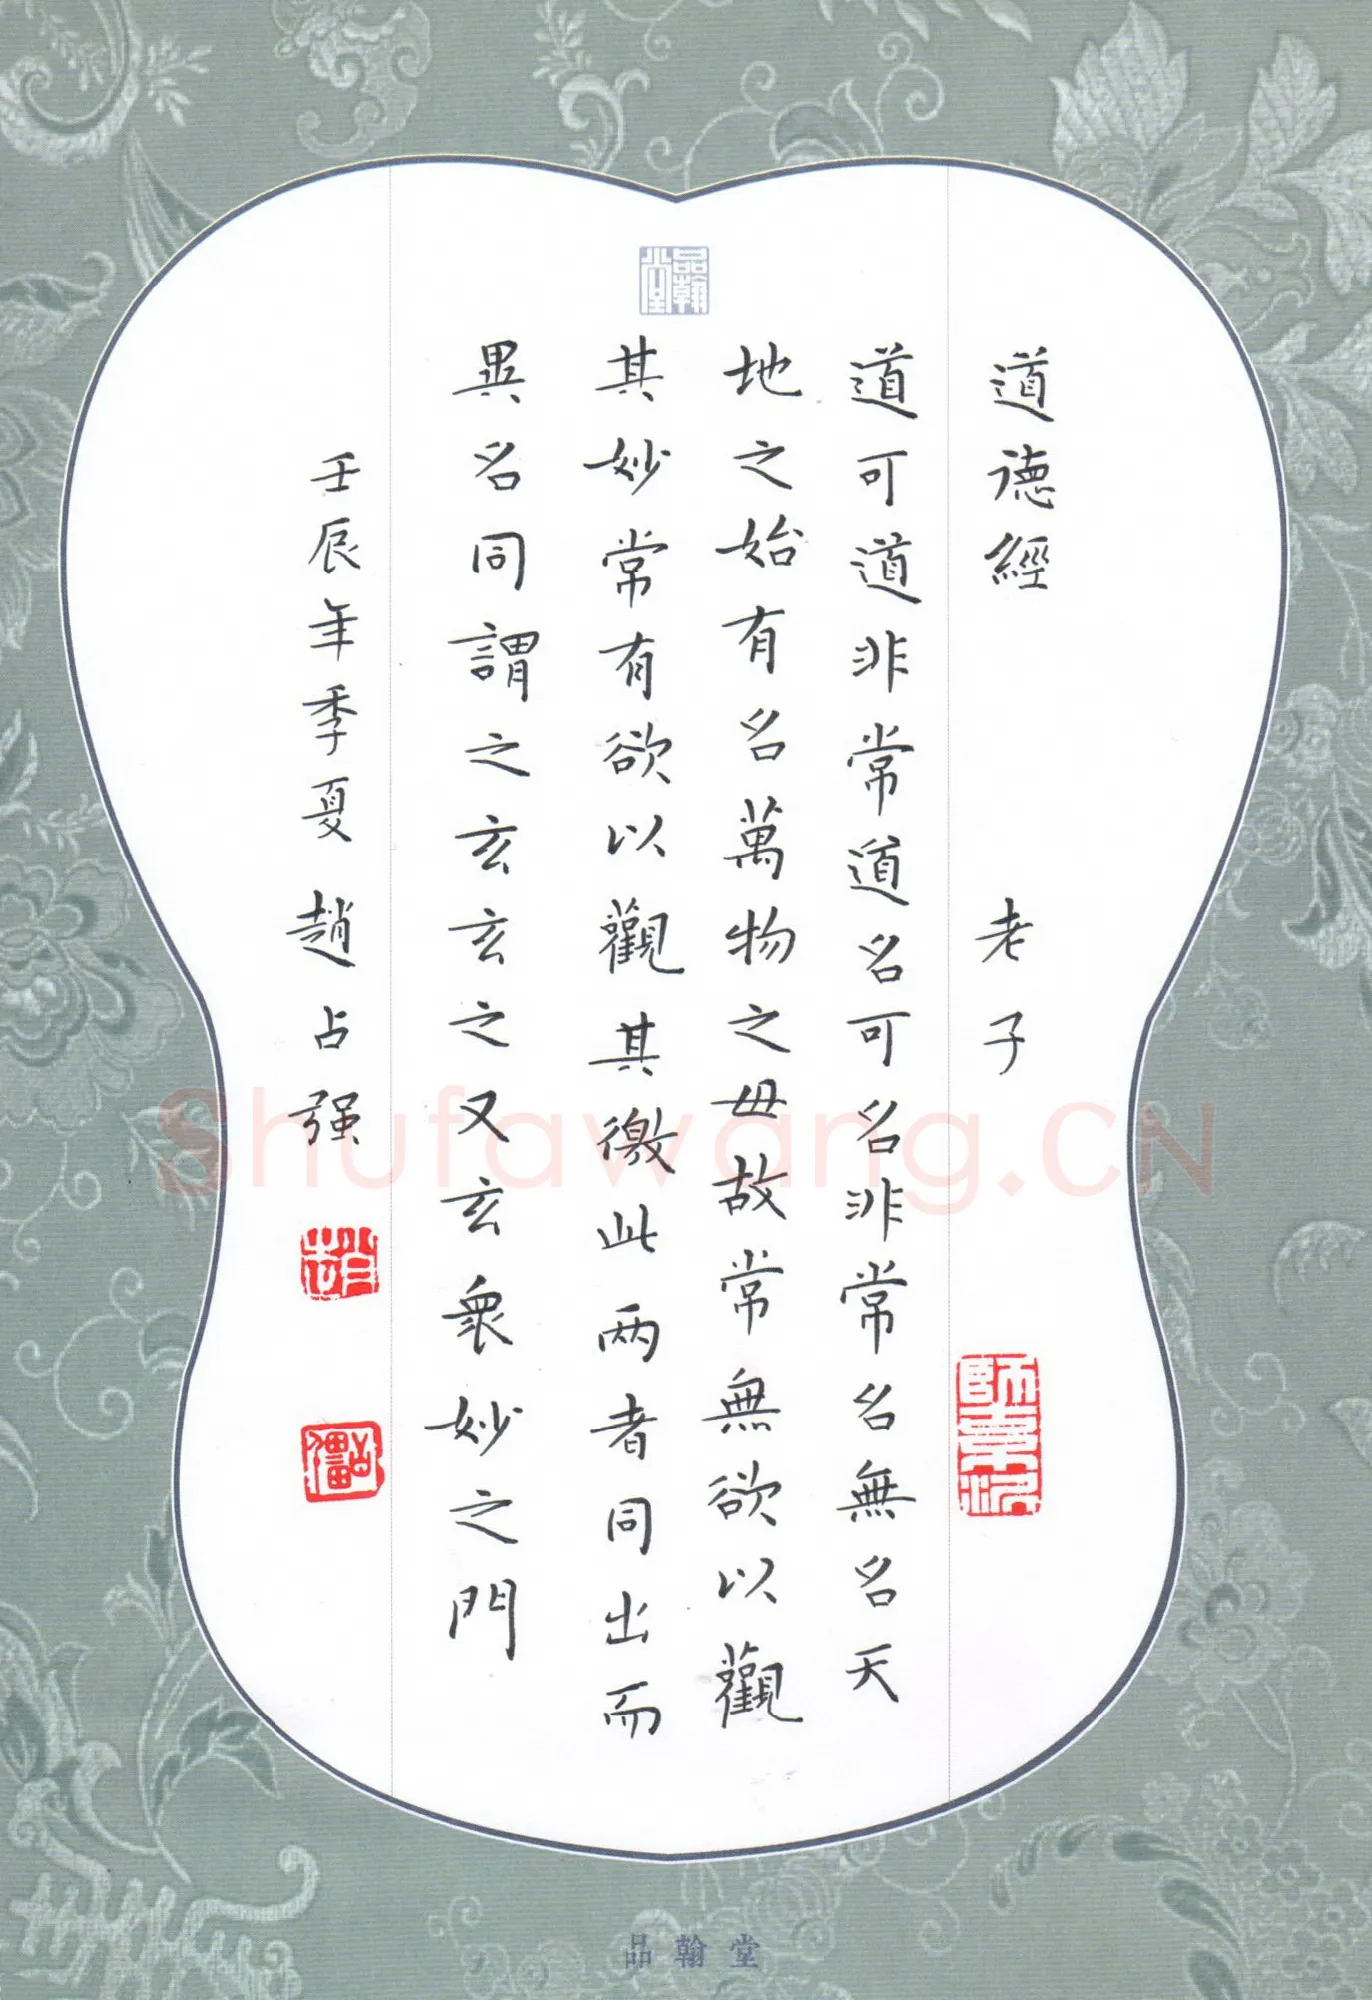 品翰堂
道德經 老子
道可道非常道名可名非常名無名天
地之始有名萬物之母故常無欲以觀
其妙常有欲以觀其徼此兩者同出而
異名同謂之玄玄之又玄衆妙之門
壬辰年季夏 趙占强
Shufawang.CN
品翰堂